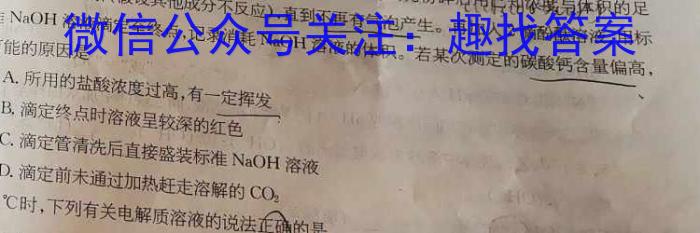 其他成分不反应)直到不再有
浓度与体积的足
NaOH
微信公众号关注：趣找答案
滴定至终点,记录消耗 NaOH
体积。若某次测定的碳酸钙含量偏高,
可能的原因是
A. 所用的盐酸浓度过高,有一定挥发
B. 滴定终点时溶液呈较深的红色
C. 滴定管清洗后直接盛装标准 NaOH 溶液
D. 滴定前未通过加热赶走溶解的 CO₂
℃时,下列有关电解质溶液的说法正确的是